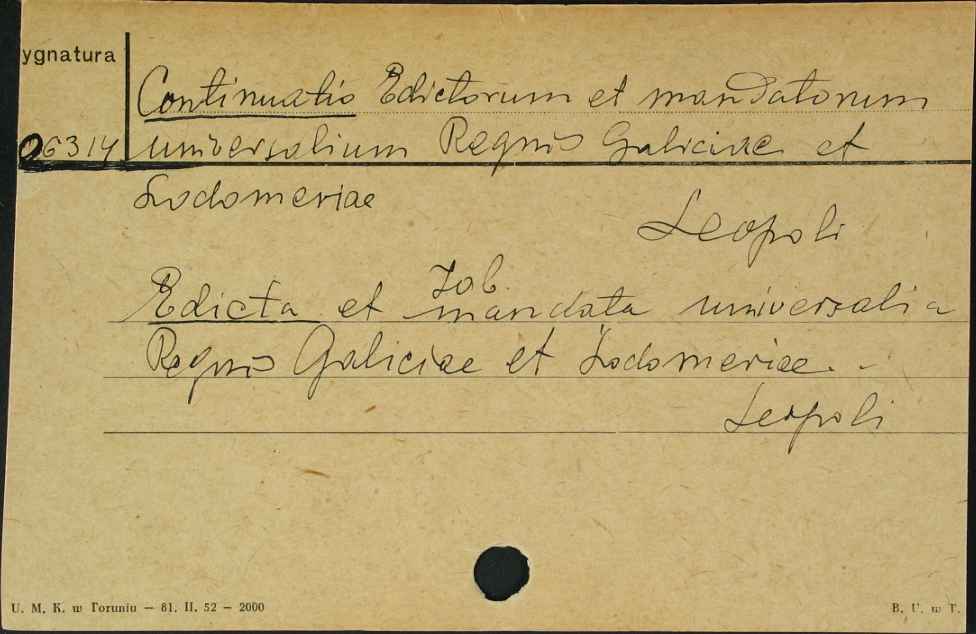 ygnatura
Continuatio Edictorum et mandatorum
06314 universalium Regnis Galiciae et
Lodomeriae
Leopoli
Zob.
Edicta et mandata universalia
Regnis Galiciae et Lodomeriae. -
Leopoli
U. M. K. w Toruniu — 81. II. 52 — 2000
B. U. w T.